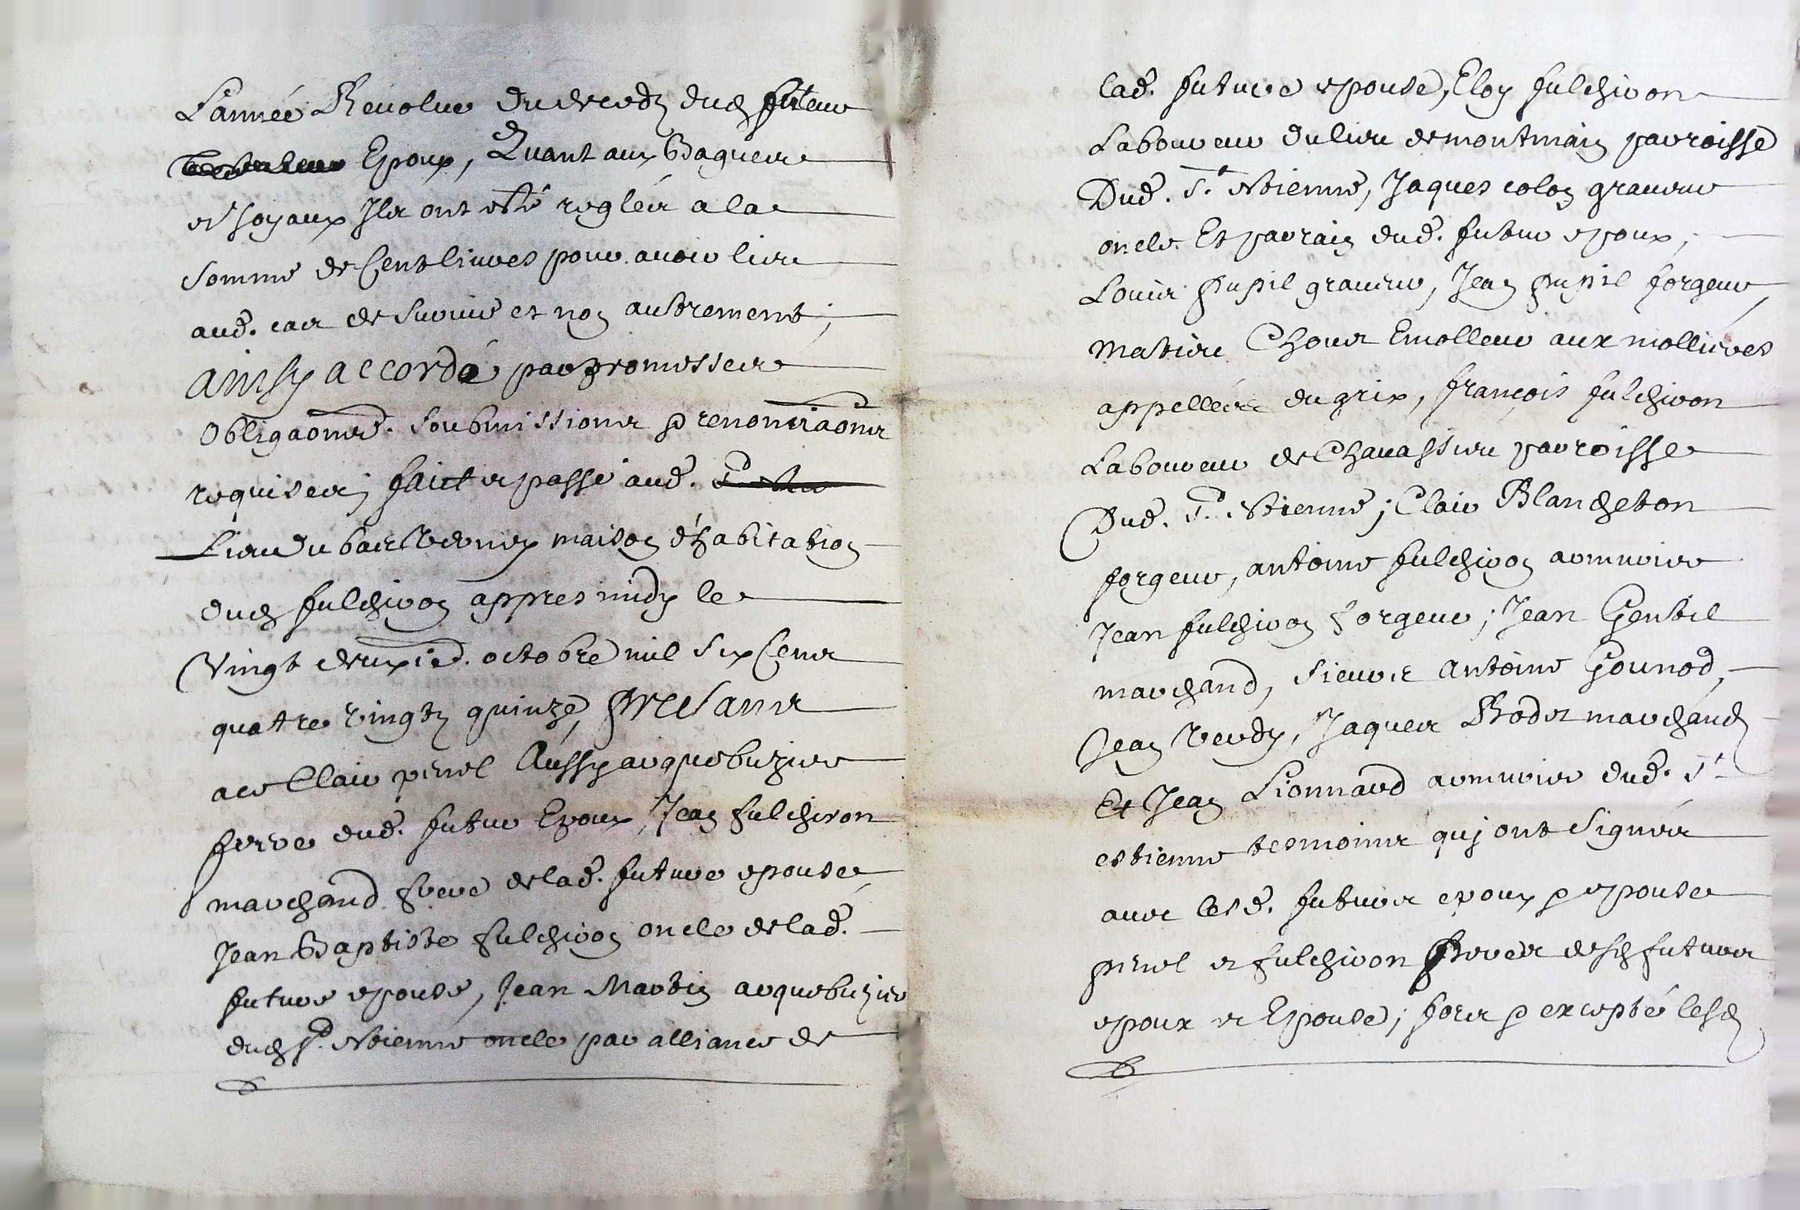 L'année Revolue du decedz dud futeur
Epoux, Quant aux Bagues
et Joyaux Ils ont esté reglés a la
somme de Cent livres pour avoir lieu
aud. cas de survie et non aultrement;
ainsy accordé par promesses
obligaõns. soubmissions & renonciaõns
requises; faict et passé aud.
Lieu du bas Vernay maison d'habitation
dud fulchiron appres midy le
Vingt deuxie. octobre mil six Cens
quatre vingtz quinze, presans
a ce Clair penel Aussy arquebuzier
frere dud. futur Epoux, Jean fulchiron
marchand frere de lad. future epouse,
Jean Baptiste fulchiron oncle de lad.
future epouse, Jean Martin arquebuzier
dud St. Etienne oncle par alliance de
lad. future epouse, Eloy fulchiron
Laboureur du lieu de montmain parroisse
Dud. St. Etienne, Jaques colon graveur
oncle Et parrain dud. futur epoux;
Louis pupil graveur, Jean pupil forgeur,
Matieu Chour Emolleur aux mollieres
appellées du grix, françois fulchiron
Laboureur de Chavassieu parroisse
Dud. St. Etienne; Clair Blancheton
forgeur, antoine fulchiron armurier
Jean fulchiron forgeur; Jean Gentil
marchand, sieurs Antoine Gounod,
Jean Verdy, Jaques Rodet marchand
Et Jean Lionnard armurier dud. St.
estienne tesmoins quj ont signés
avec lesd. futurs epoux & epouse
penel et fulchiron freres desd futurs
epoux et Epouse; fors & excepté lesd